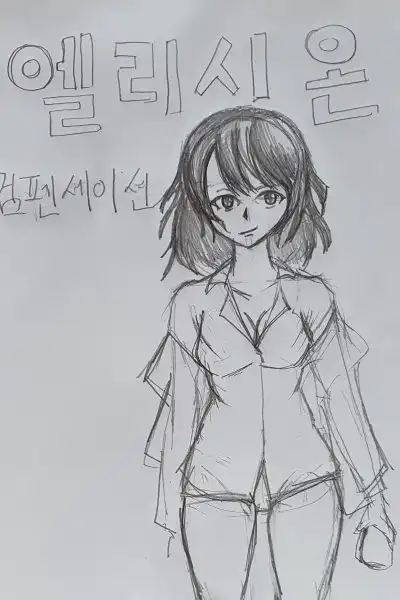 엘리시온
컴펜세이션